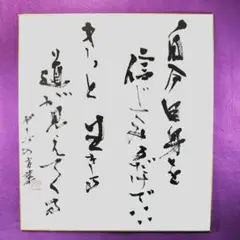 自分自身を
信じてみるだけで…
きっと生きる
道が見えてくる
ゲーテの言葉